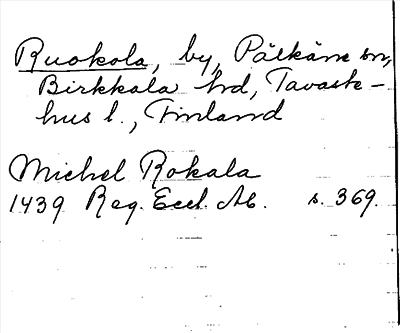 Ruokola, by, Pälkäne sn,
Birkkala hd, Tavaste-
hus l., Finland
Michel Rokala
1439 Reg. Eccl. Ab. s. 369.